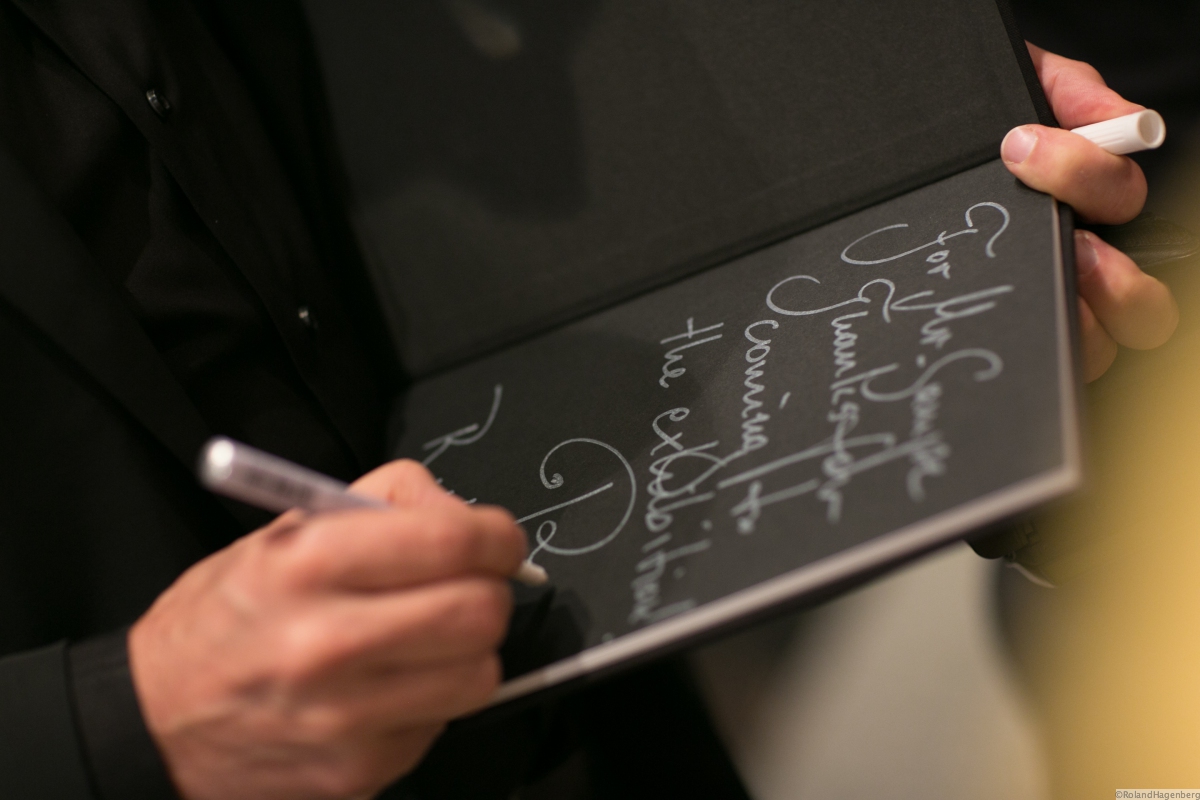 For Mr.
Thanks for
coming to
the exhibition
R
©RolandHagenberg